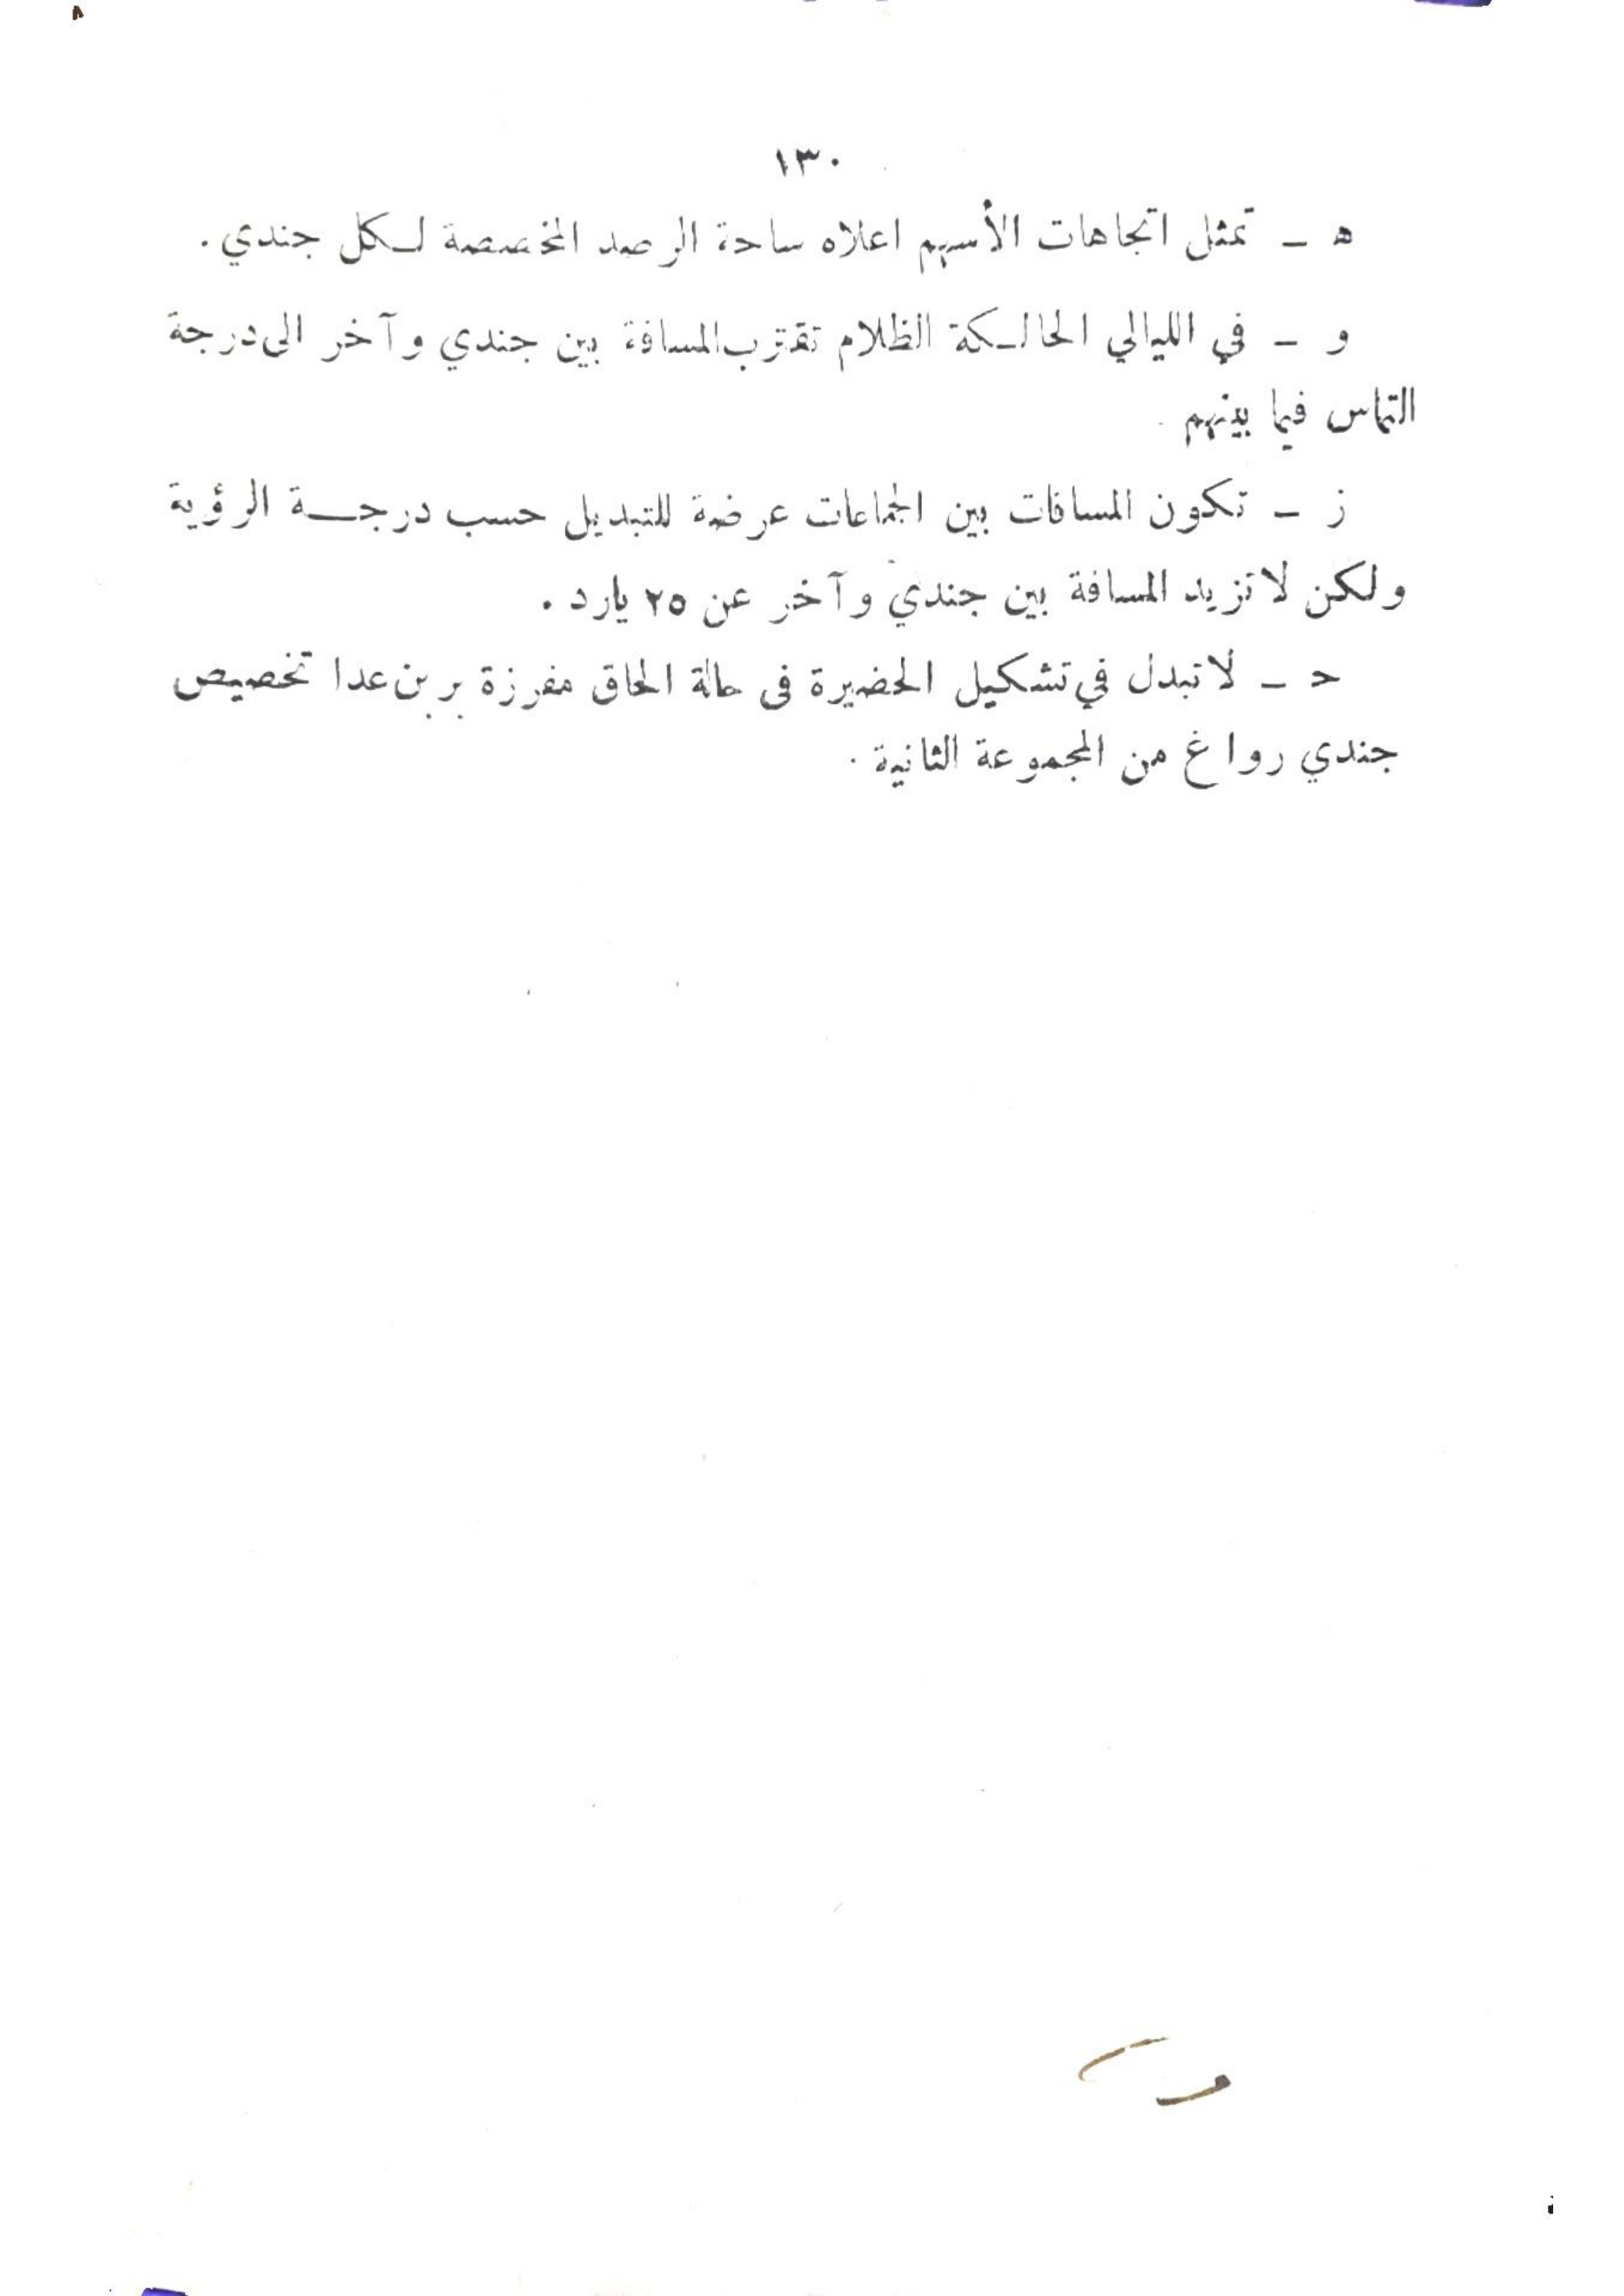 ١٣٠
ه – تمثل اتجاهات الأسهم اعلاه ساحة الرصد المخصصة لكل جندي .
و – في الليالي الحالكة الظلام تقترب المسافة بين جندي وآخر الى درجة
التماس فيما بينهم .
ز – تكون المسافات بين الجماعات عرضة للتبديل حسب درجة الرؤية
ولكن لا تزيد المسافة بين جندي وآخر عن ٢٥ يارد .
ح – لا تبدل في تشكيل الحضيرة في حالة الحاق مفرزة برين عدا تخصيص
جندي رواغ من المجموعة الثانية .